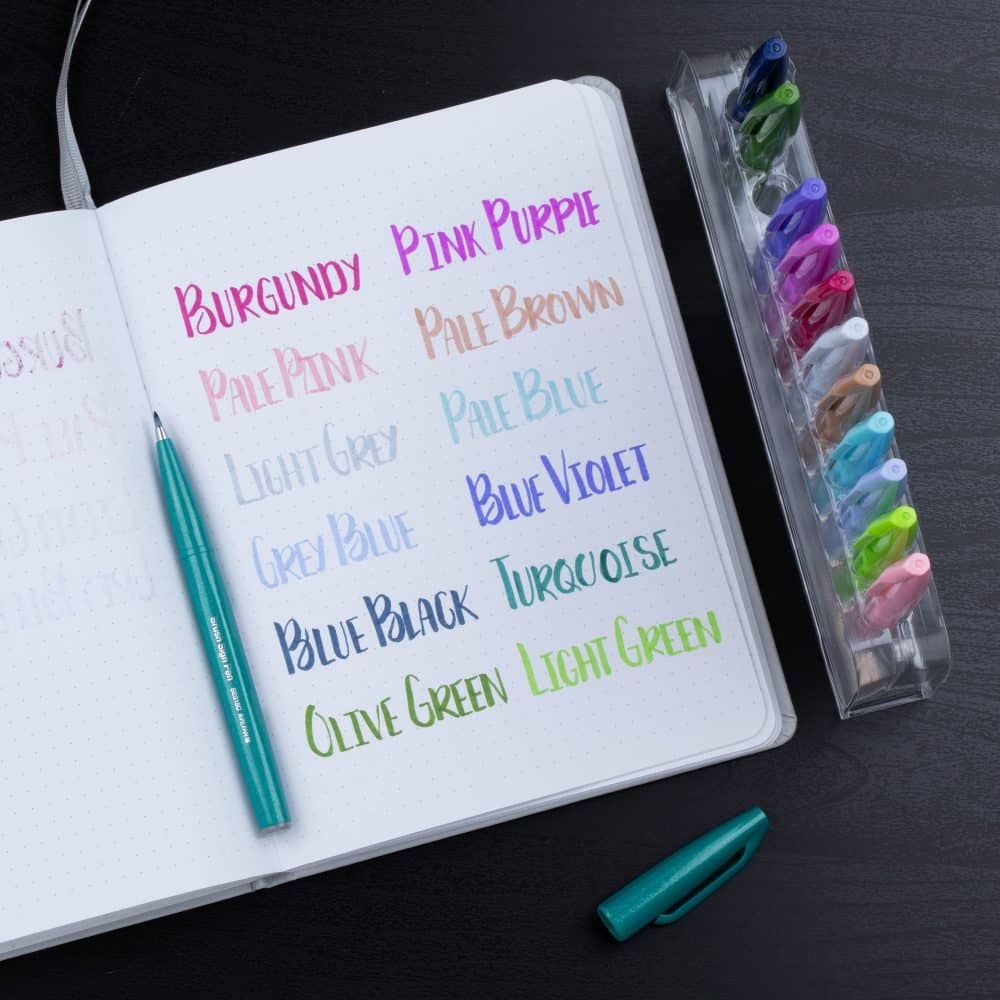 BURGUNDY PINK PURPLE
PALE PINK PALE BROWN
LIGHT GREY PALE BLUE
GREY BLUE BLUE VIOLET
BLUE BLACK TURQUOISE
OLIVE GREEN LIGHT GREEN
brush sign pen